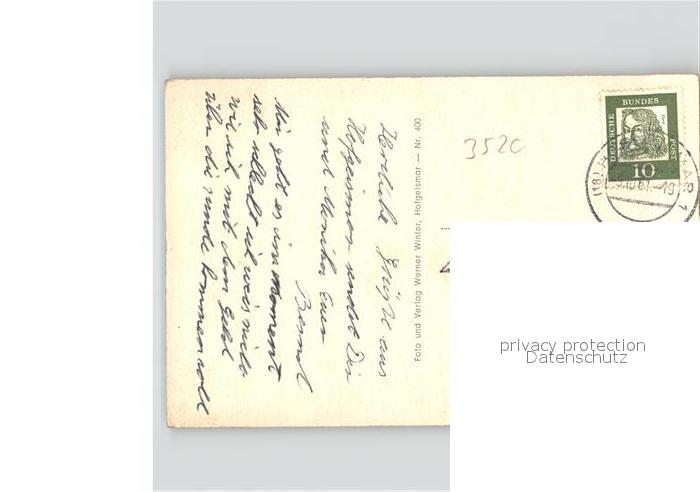 Herzliche Grüße aus
Hofgeismar sendet Dir
und Monika Euer
Bernd
Mir geht es im Moment
sehr schlecht ich weis nicht
wie ich mit dem Geld
über die runde kommen soll
Foto und Verlag Werner Winter, Hofgeismar — Nr. 400
3520
DEUTSCHE
BUNDES
POST
10
(16)
privacy protection
Datenschutz